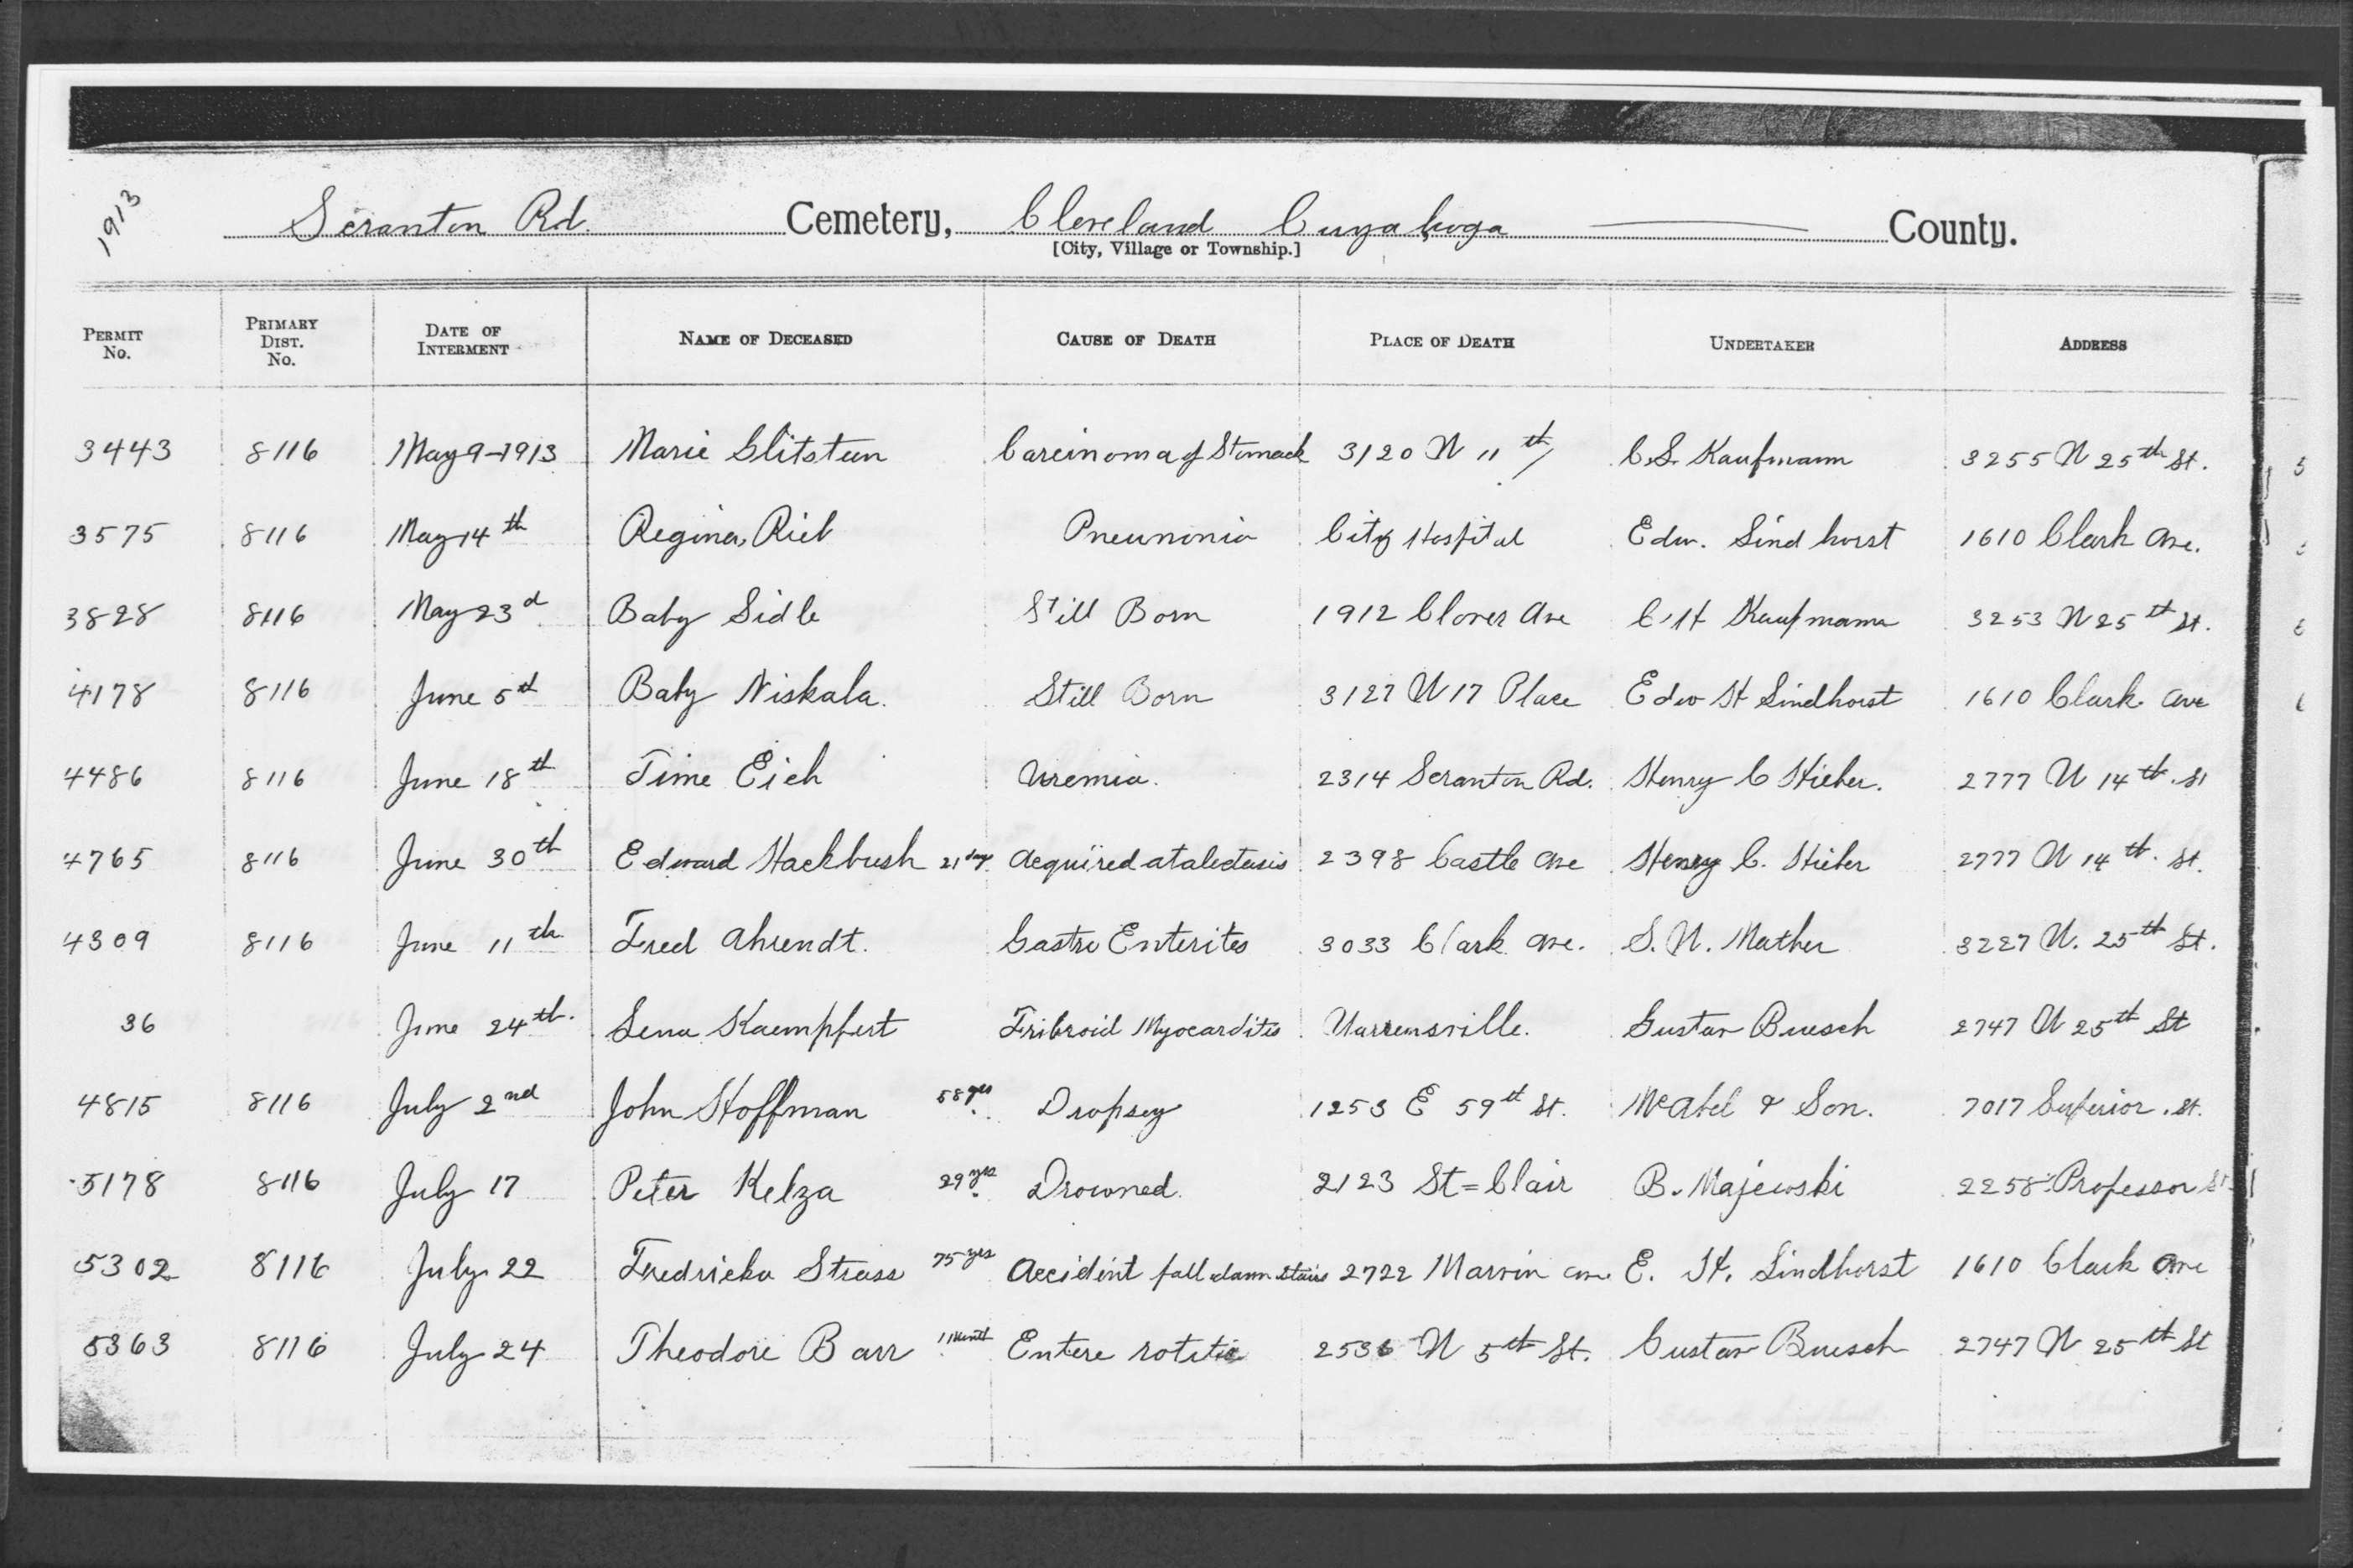 1913
Scranton Rd. Cemetery, Cleveland Cuyahoga County.
[City, Village or Township.]
PERMIT No. PRIMARY DIST. No. DATE OF INTERMENT NAME OF DECEASED CAUSE OF DEATH PLACE OF DEATH UNDERTAKER ADDRESS
3443 8116 May 9-1913 Marie Glitsteen Carcinoma of Stomach 3120 W 11th C.S. Kaufmann 3255 W 25th St.
3575 8116 May 14th Regina Rieb Pneumonia City Hospital Edw. Lindhorst 1610 Clark Ave.
3828 8116 May 23d Baby Sidle Still Born 1912 Clover Ave C. H Kaufmann 3253 W 25th St.
4178 8116 June 5th Baby Niskala. Still Born 3127 W 17 Place Edw H Lindhorst 1610 Clark Ave
4486 8116 June 18th Time Eich Uremia. 2314 Scranton Rd. Henry C Stieber. 2777 W 14th St
4765 8116 June 30th Edward Hackbush 21 days Acquired atalectasis 2398 Castle Ave Henry C. Stieber 2777 W 14th St.
4309 8116 June 11th Fred Ahrendt. Gastro Enterites 3033 Clark Ave. S. W. Mather 3227 W. 25th St.
36 June 24th. Lena Kaempfert Fribroid Myocarditis Warrensville. Gustav Buesch 2747 W 25th St
4815 8116 July 2nd John Hoffman 58 yrs Dropsey 1253 E 59th St. McAbel & Son. 7017 Superior St.
5178 8116 July 17 Peter Kelza 29 yrs Drowned. 2123 St=Clair B. Majewski 2258 Professor St
5302 8116 July 22 Fredricka Strass 75 yrs Accident fall down stairs 2722 Marvin Ave E. H. Lindhorst 1610 Clark Ave
5363 8116 July 24 Theodore Barr 1 Month Entere rotitis 2536 W 5th St. Gustav Buesch 2747 W 25th St